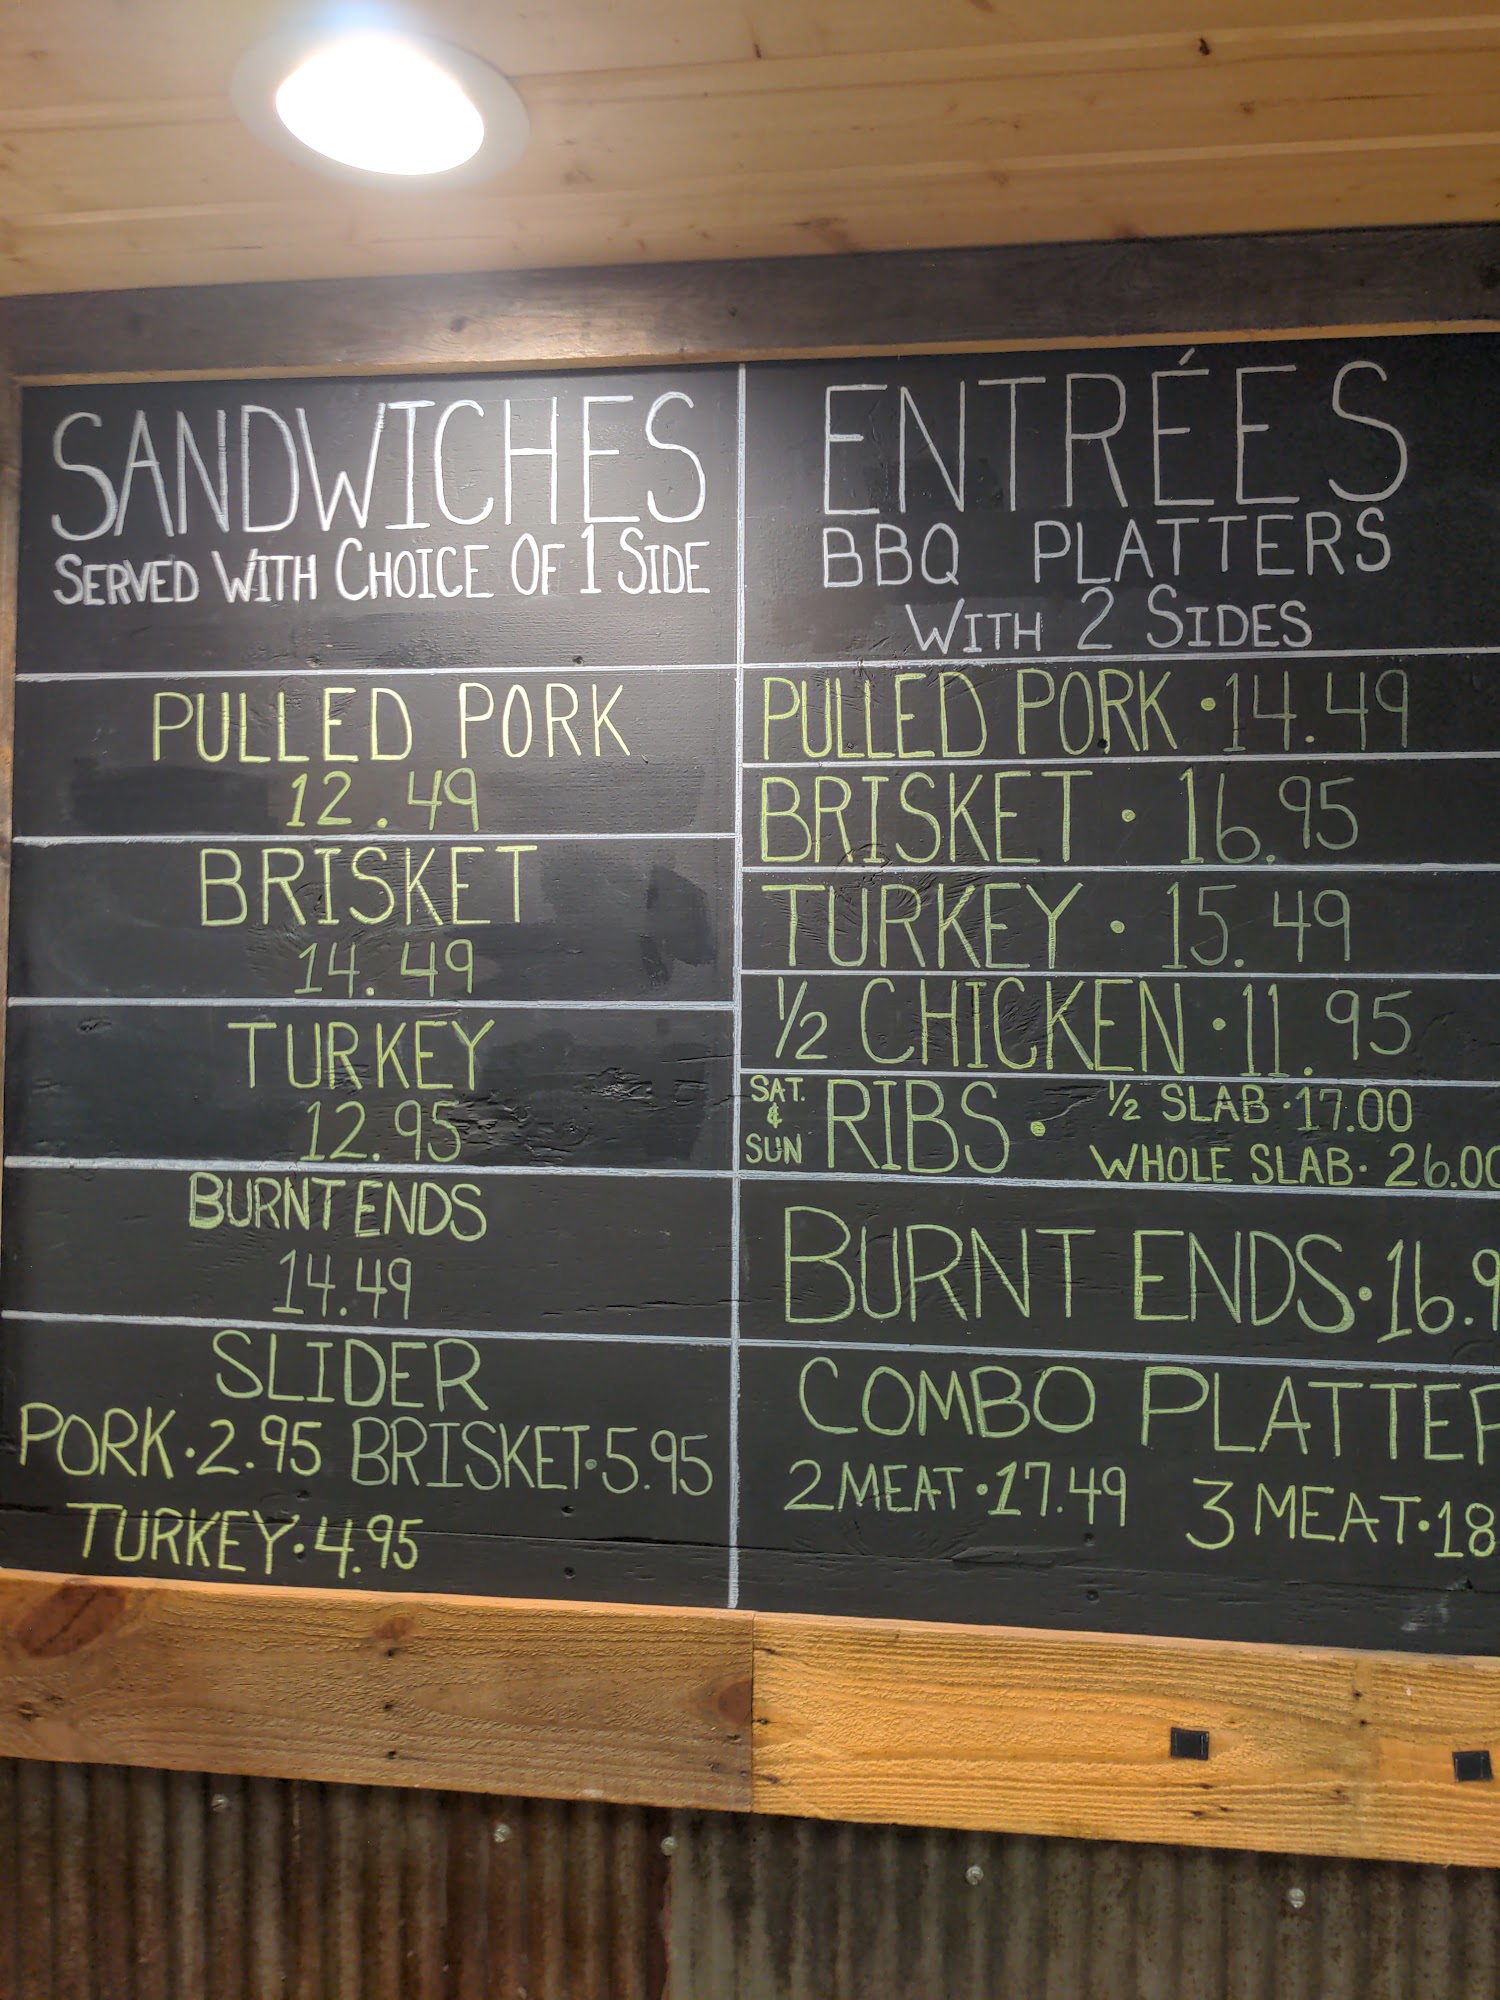 SANDWICHES
SERVED WITH CHOICE OF 1 SIDE
PULLED PORK
12.49
BRISKET
14.49
TURKEY
12.95
BURNT ENDS
14.49
SLIDER
PORK·2.95 BRISKET·5.95
TURKEY·4.95
ENTRÉES
BBQ PLATTERS
WITH 2 SIDES
PULLED PORK·14.49
BRISKET·16.95
TURKEY·15.49
½ CHICKEN·11.95
SAT. & SUN RIBS· ½ SLAB·17.00
WHOLE SLAB·26.00
BURNT ENDS·16.9
COMBO PLATTER
2 MEAT·17.49 3 MEAT·18